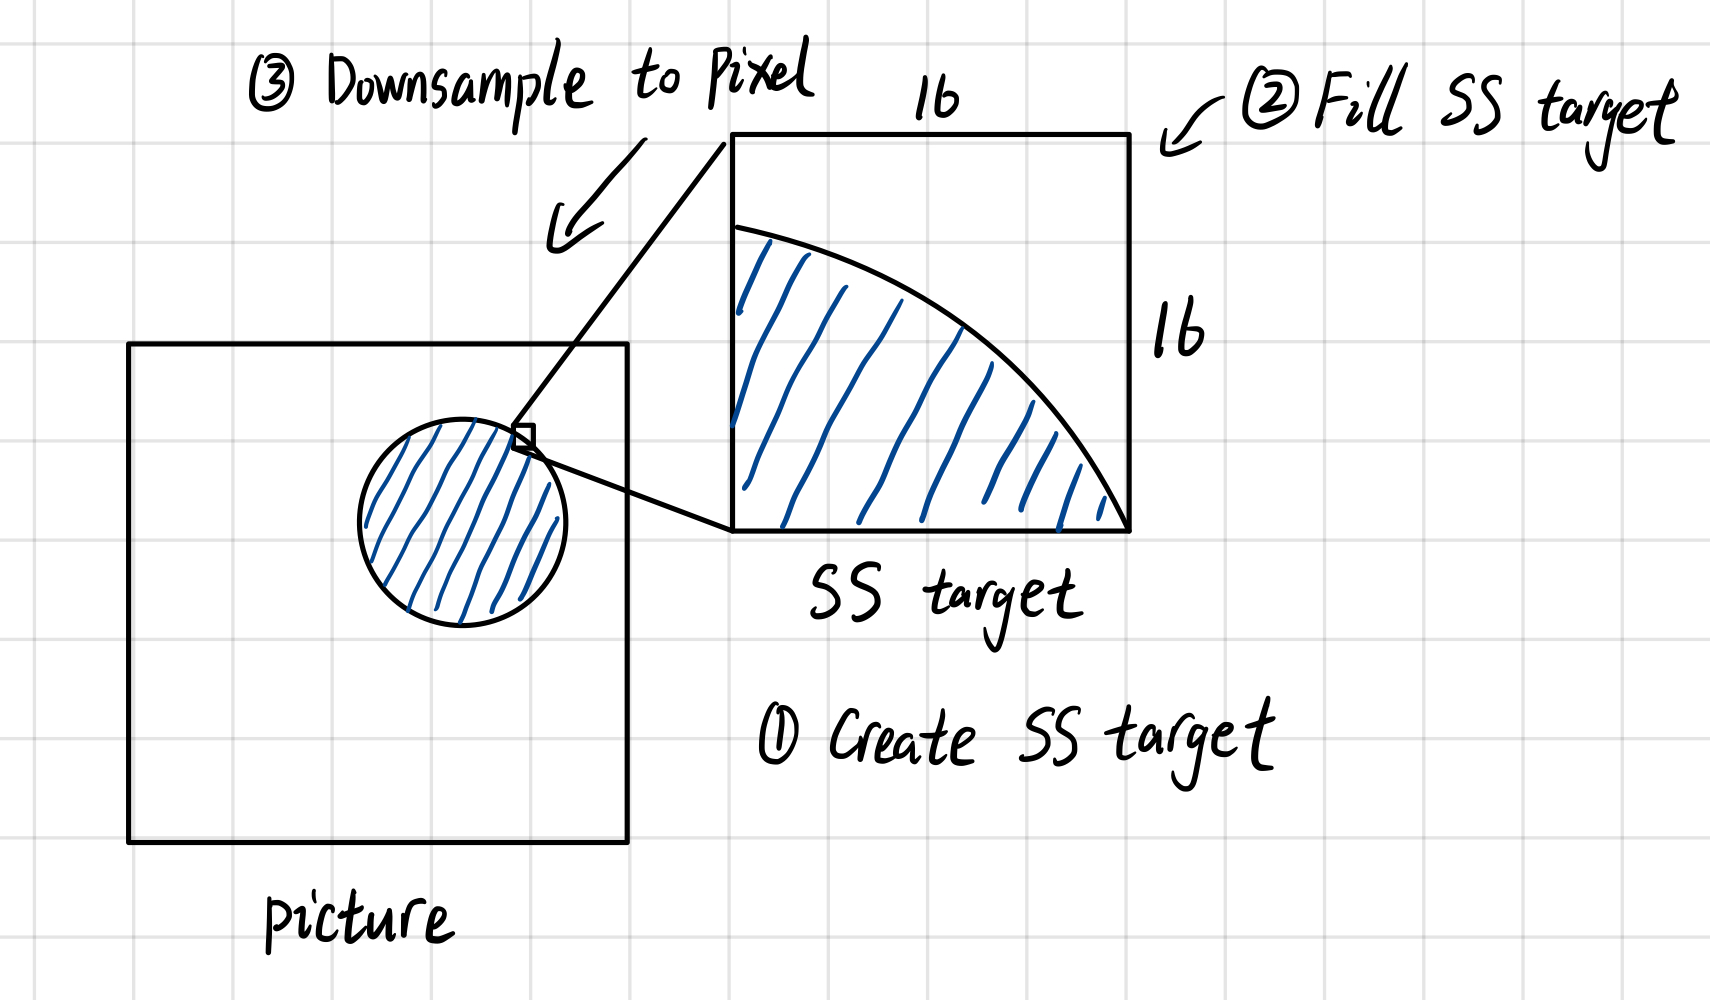 ③ Downsample to Pixel
16
② Fill SS target
16
SS target
① Create SS target
picture